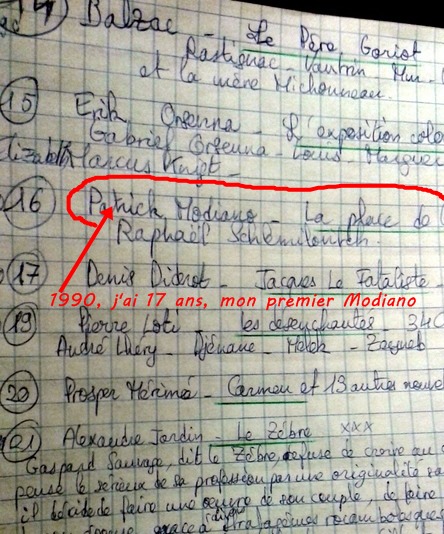 14 Balzac - Le Père Goriot
Rastignac - Vautrin Mme -
et la mère Michonneau
15 Erik Orsenna - L'exposition colo
Gabriel Orsenna - Louis - Marguer
Elizabeth Marcus Knight -
16 Patrick Modiano - La place de
Raphaël Schlemilovitch.
17 Denis Diderot - Jacques Le Fataliste -
1990, j'ai 17 ans, mon premier Modiano
19 Pierre Loti Les désenchantées - 340
André Lhéry - Djénane - Melek - Zeyneb
20 Prosper Mérimée - Carmen et 13 autres nouve
21 Alexandre Jardin - Le Zèbre xxx
Gaspard Sauvage, dit le Zèbre, refuse de croire au
pense le sérieux de sa profession par une originalité sa
il décide de faire une oeuvre de son couple, de faire
grâce à stratagèmes rocambolesques